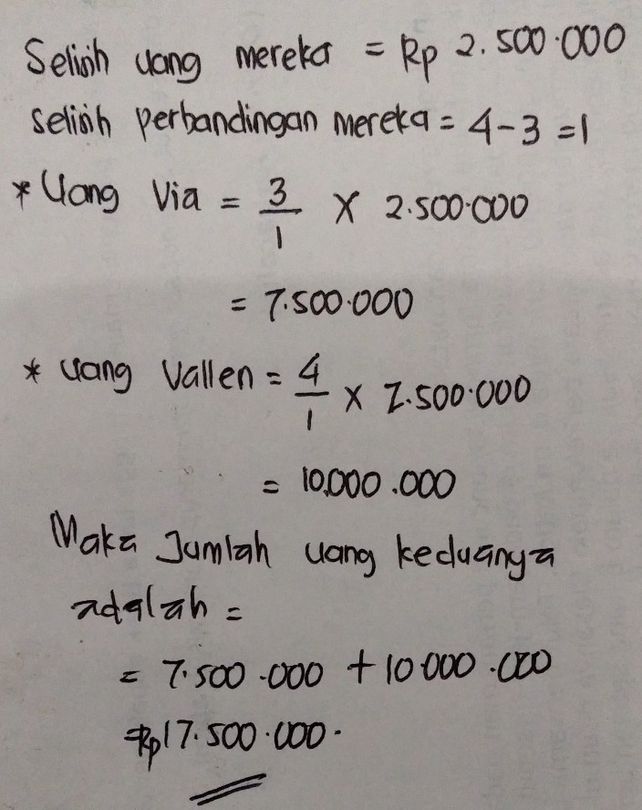 Selisih uang mereka = Rp 2.500.000
Selisih perbandingan mereka = 4-3 =1
* Uang Via = 3/1 X 2.500.000
= 7.500.000
* uang Vallen = 4/1 X 2.500.000
= 10.000.000
Maka Jumlah uang keduanya
adalah =
= 7.500.000 + 10.000.000
=Rp17.500.000.